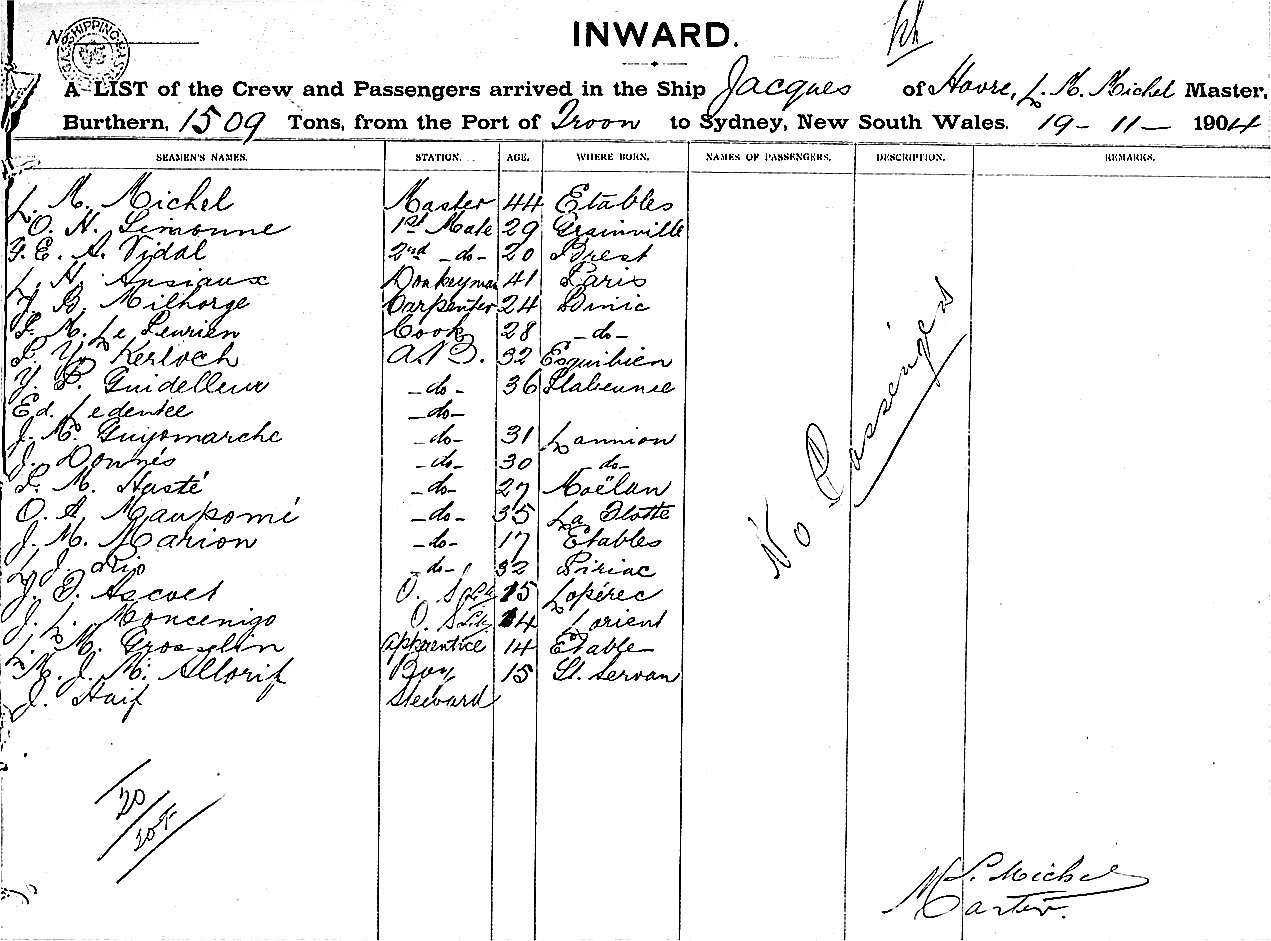 INWARD.
No
A LIST of the Crew and Passengers arrived in the Ship Jacques of Havre, L. M. Michel Master,
Burthern, 1509 Tons, from the Port of Troon to Sydney, New South Wales. 19 - 11 - 1904
SEAMEN'S NAMES. STATION. AGE. WHERE BORN. NAMES OF PASSENGERS. DESCRIPTION. REMARKS.
L. M. Michel Master 44 Etables
O. H. Simonne 1st Mate 29 Grainville
F. E. A. Vidal 2nd -do- 20 Brest
L. H. Ansiaux Donkeyman 41 Paris
J. B. Milhorge Carpenter 24 Binic
F. M. Le Peurien Cook 28 -do-
P. Y. Kerloch A.B. 32 Esquibien
Y. P. Guidelleur -do- 36 Plabennec
Ed. Ledentee -do-
J. M. Guyomarche -do- 31 Lannion
J. Downés -do- 30 -do-
P. M. Hasté -do- 27 Moëlan
O. A. Maupomé -do- 35 La Flotte
J. M. Marion -do- 17 Etables
L. J. Rio -do- 32 Piriac
J. F. Ascoet O. S. 15 Lopérec
J. L. Moncenigo O. S. 14 Lorient
L. M. Grosselin Apprentice 14 Etable
M. J. M. Allorif Boy 15 St. Servan
J. Haif Steward
No Passengers
20
L. Michel
Master.